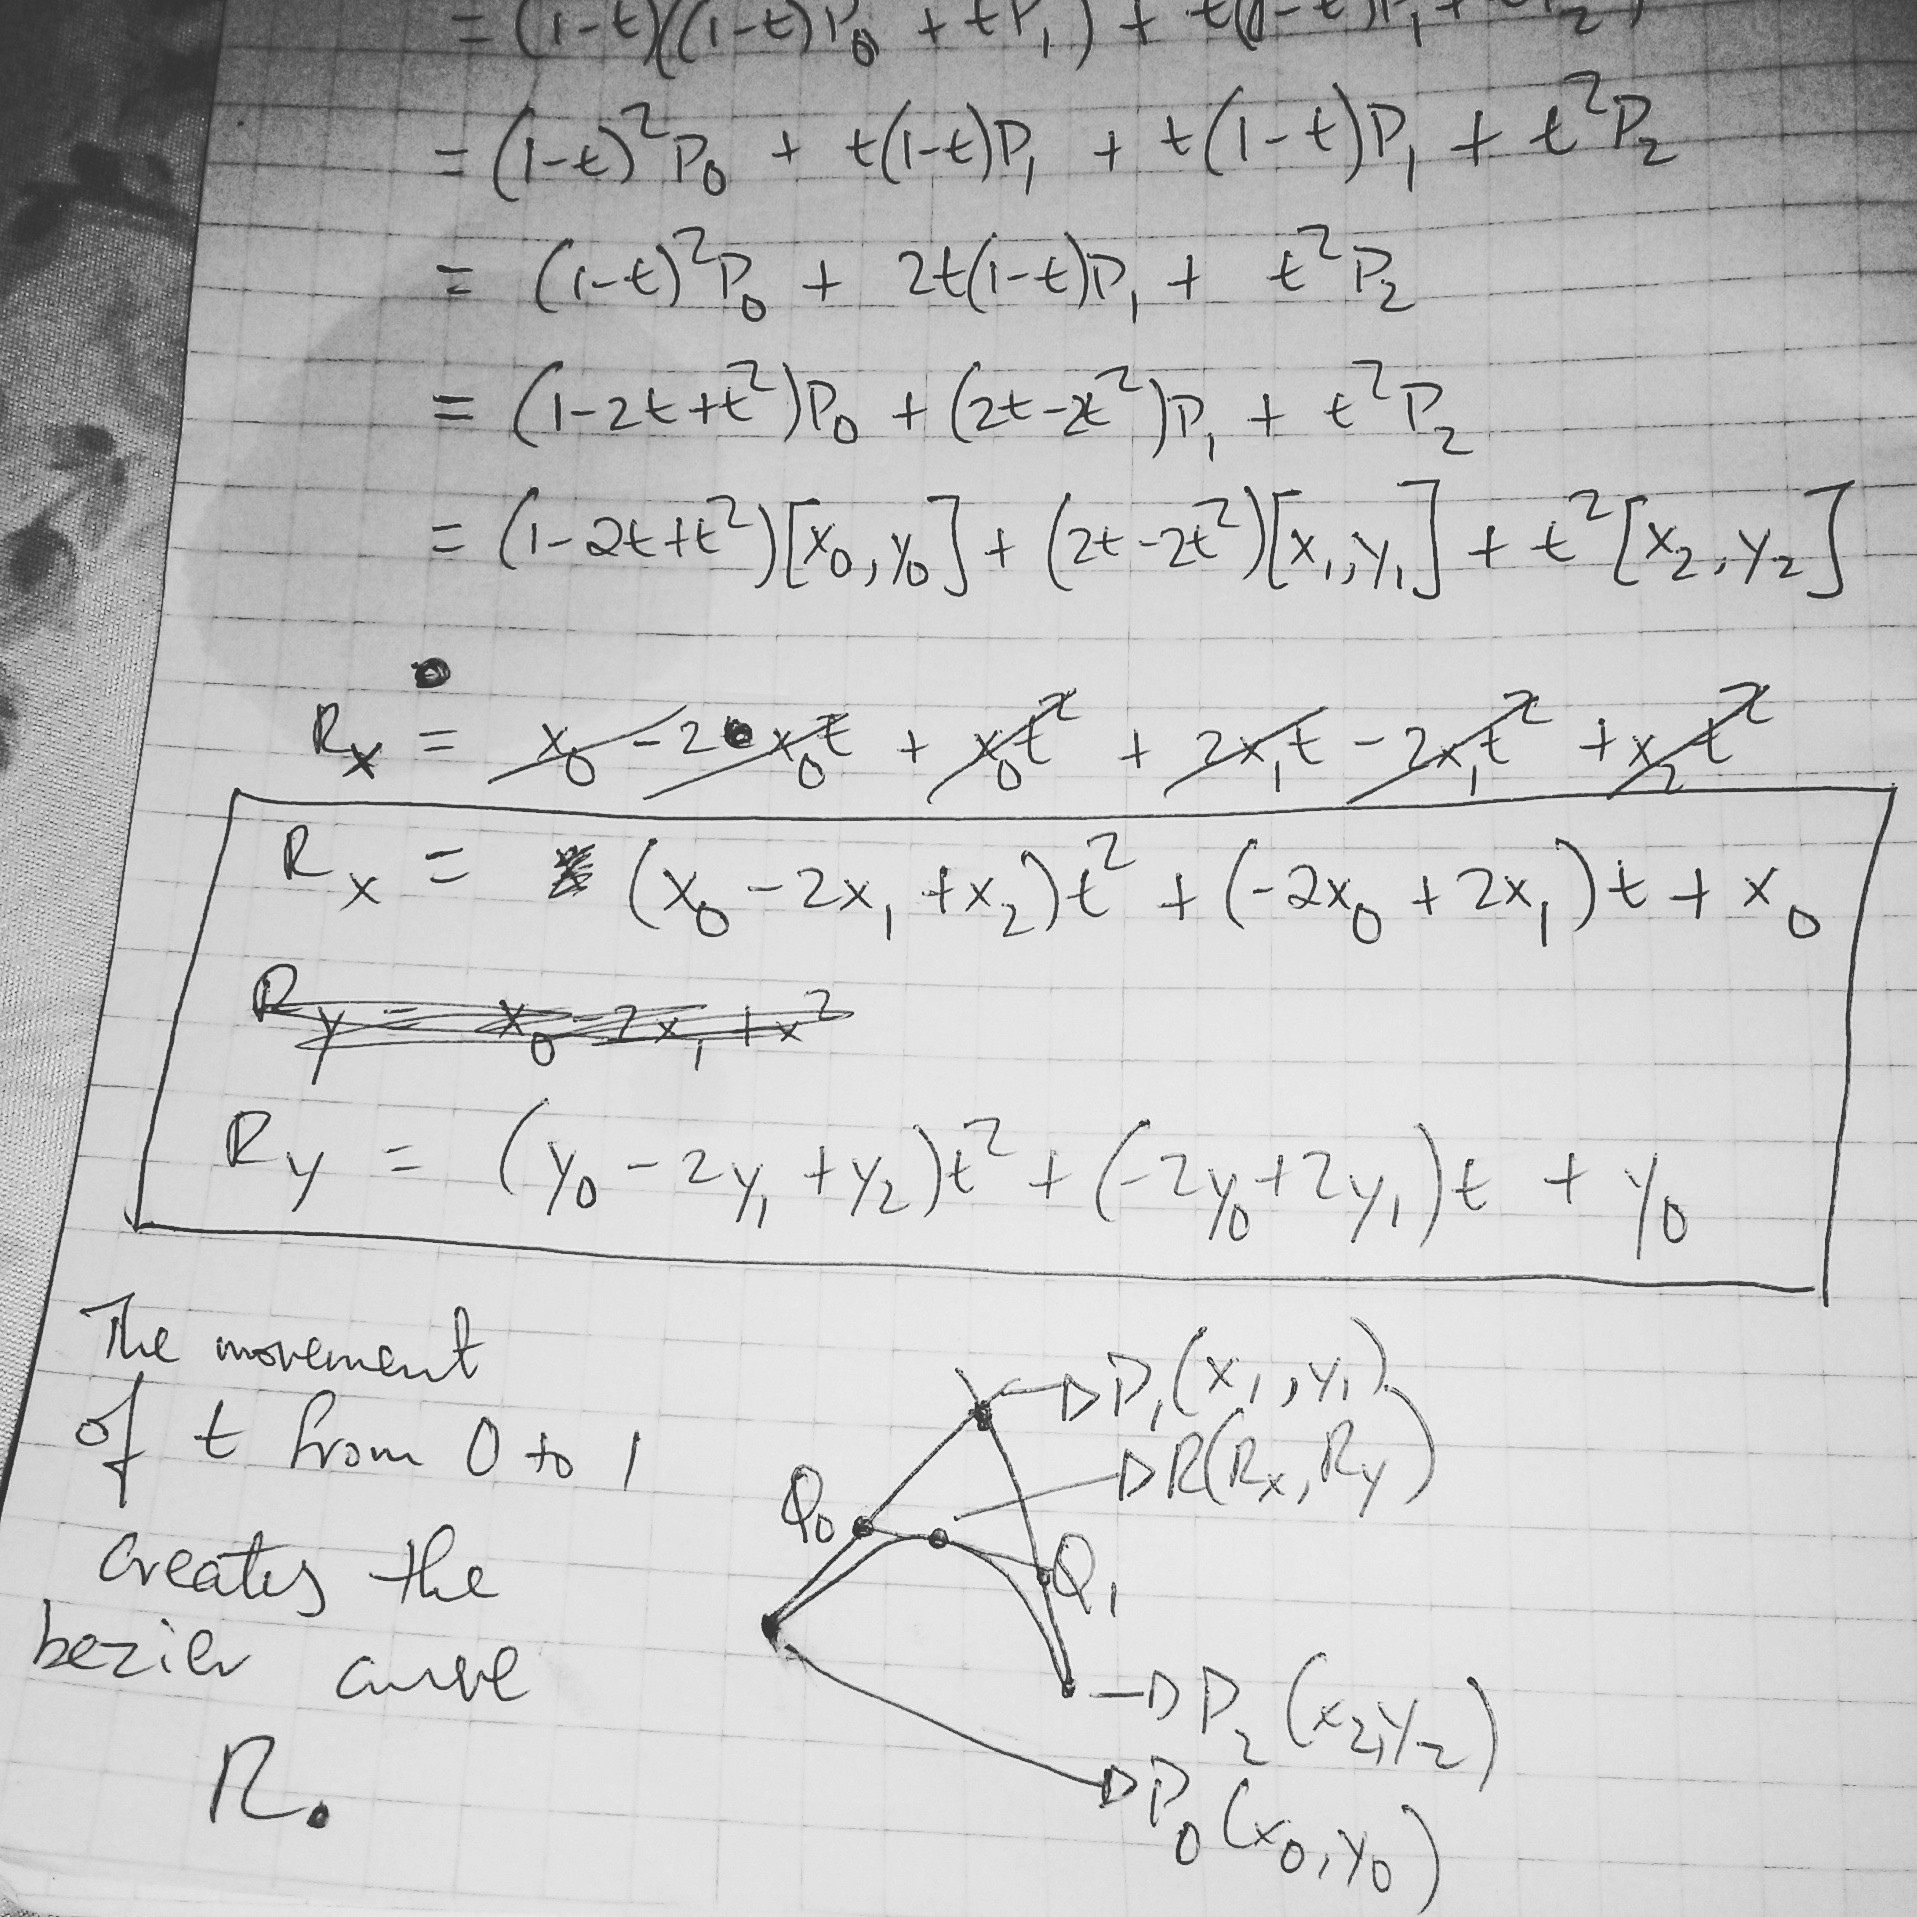 = (1-t)((1-t)P₀ + tP₁) + t((1-t)P₁ + tP₂)
= (1-t)²P₀ + t(1-t)P₁ + t(1-t)P₁ + t²P₂
= (1-t)²P₀ + 2t(1-t)P₁ + t²P₂
= (1-2t+t²)P₀ + (2t-2t²)P₁ + t²P₂
= (1-2t+t²)[x₀,y₀] + (2t-2t²)[x₁,y₁] + t²[x₂,y₂]
Rx = x₀ - 2x₀t + x₀t² + 2x₁t - 2x₁t² + x₂t²
Rx = (x₀ - 2x₁ + x₂)t² + (-2x₀ + 2x₁)t + x₀
Ry = x₀ - 2x₁ + x²
Ry = (y₀ - 2y₁ + y₂)t² + (-2y₀ + 2y₁)t + y₀
The movement
of t from 0 to 1
creates the
bezier curve
R.
P₁(x₁,y₁)
R(Rx,Ry)
Q₀
Q₁
P₂(x₂,y₂)
P₀(x₀,y₀)